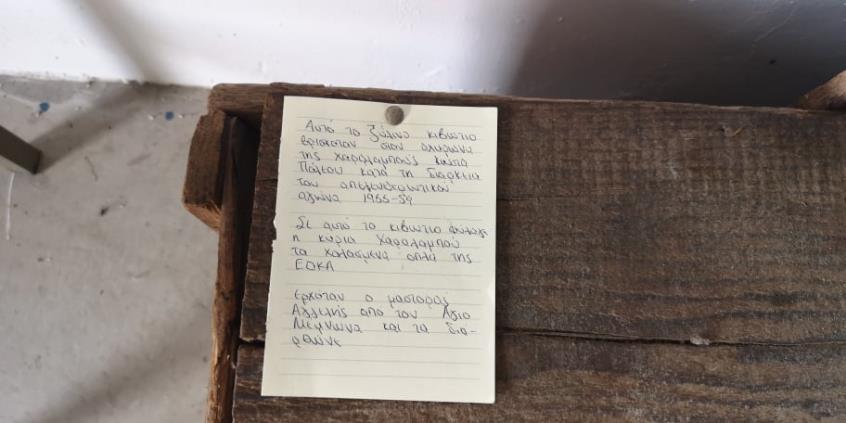 Αυτό το ξύλινο κιβώτιο
βρισκόταν στον αχυρώνα
της Χαραλαμπούς Κώστα
Πάλιου κατά τη διάρκεια
του απελευθερωτικού
αγώνα 1955-59
Σε αυτό το κιβώτιο φύλαγε
η κυρία Χαραλαμπού
τα χαλασμένα όπλα της
ΕΟΚΑ
Ερχόταν ο μάστορας
από τον Άγιο
Μέμνωνα και τα διο-
ρθωνε